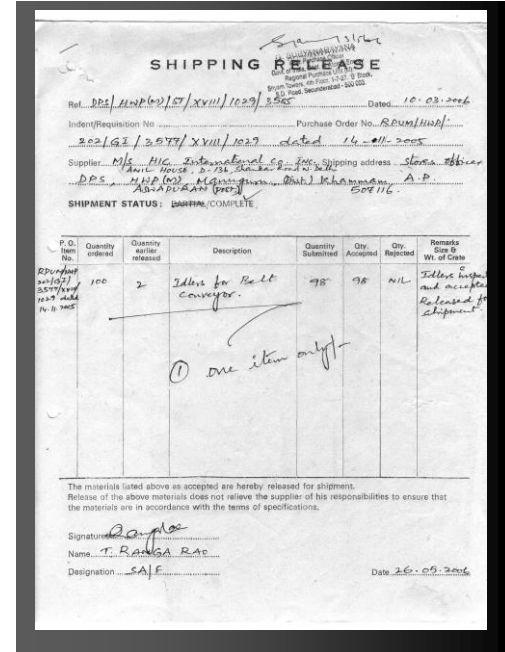 SHIPPING RELEASE
Ref. DPS/HWP(M)/57/XVIII/1029/3565 Dated 10-03-2006
Indent/Requisition No Purchase Order No. RPUM/HWP/
202/GI/3577/XVIII/1029 dated 14-11-2005
Supplier M/s HIC International Co. INC. Shipping address Stores officer
ANIL HOUSE, D-136, Road N. Delhi
DPS, HWP(M) Manuguru, (Dist) Khammam, A.P.
(POST) 507116.
SHIPMENT STATUS: PARTIAL/COMPLETE
P. O. Item No. Quantity ordered Quantity earlier released Description Quantity Submitted Qty. Accepted Qty. Rejected Remarks Size & Wt. of Crate
RPUM/HWP 202/GI/ 3577/XVIII/ 1029 dated 14-11-2005 100 2 Idlers for Belt conveyor. 98 98 NIL Idlers and accepted Released for shipment.
① one item only/-
The materials listed above as accepted are hereby released for shipment.
Release of the above materials does not relieve the supplier of his responsibilities to ensure that
the materials are in accordance with the terms of specifications.
Signature
Name T. RANGA RAO
Designation SA/F Date 26-05-2006